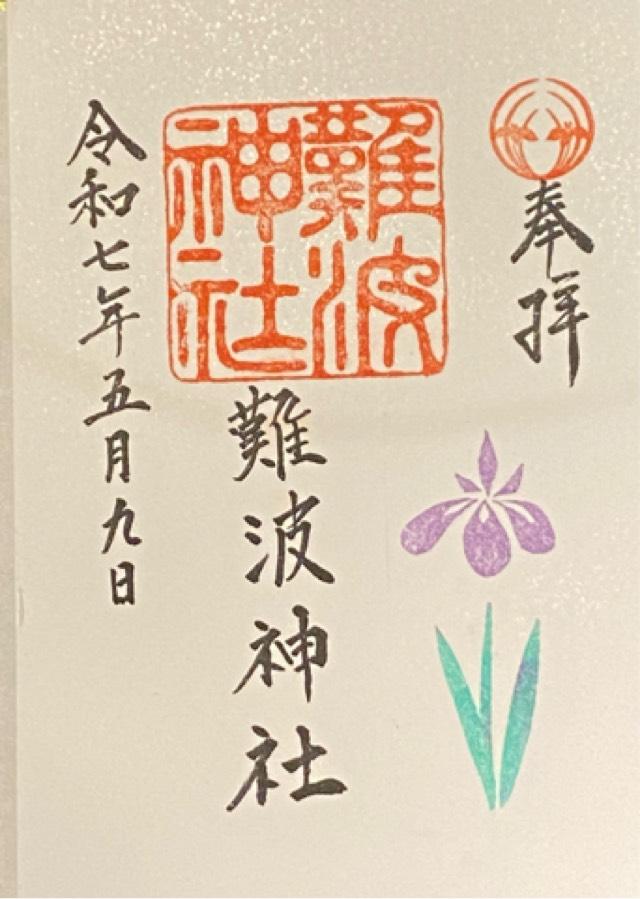 奉拝
難波神社
難波神社
令和七年五月九日